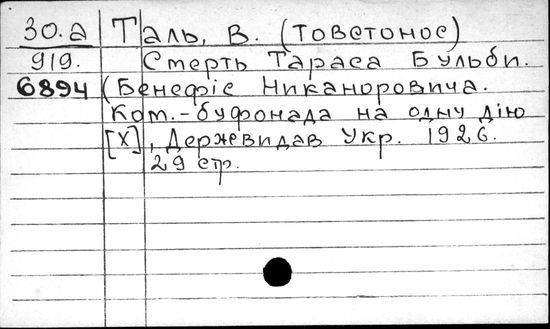 30.а Таль, В. (Товстонос)
919. Смерть Тараса Бульби.
6894 (Бенефіс Никаноровича.
Ком.-буфонада на одну дію
[X], Державидав Укр. 1926.
29 стр.